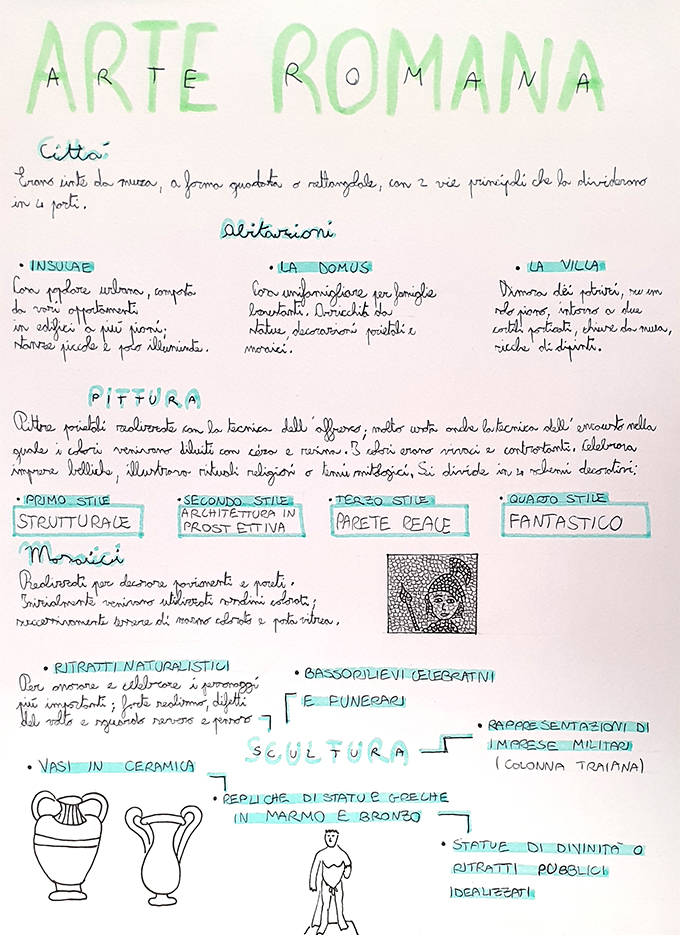 ARTE ROMANA
ARTE ROMANA
Città
Erano cinte da mura, a forma quadrata o rettangolare, con 2 vie principali che la dividevano
in 4 parti.
Abitazioni
• INSULAE
Casa popolare urbana, composta
da vari appartamenti
in edifici a più piani;
stanze piccole e poco illuminate.
• LA DOMUS
Casa unifamigliare per famiglie
benestanti. Arricchita da
statue, decorazioni parietali e
mosaici.
• LA VILLA
Dimora dei patrizi, su un
solo piano, intorno a due
cortili porticati, chiuse da mura,
ricche di dipinti.
PITTURA
Pitture parietali realizzate con la tecnica dell'affresco; molto usata anche la tecnica dell'encausto nella
quale i colori venivano diluiti con cera e resina. I colori erano vivaci e contrastanti. Celebrava
imprese belliche, illustravano rituali religiosi o temi mitologici. Si divide in 4 schemi decorativi:
• PRIMO STILE
STRUTTURALE
• SECONDO STILE
ARCHITETTURA IN
PROSTETTIVA
• TERZO STILE
PARETE REALE
• QUARTO STILE
FANTASTICO
Mosaici
Realizzati per decorare pavimenti e pareti.
Inizialmente venivano utilizzati sassolini colorati;
successivamente tessere di marmo colorato e pasta vitrea.
• RITRATTI NATURALISTICI
Per onorare e celebrare i personaggi
più importanti; forte realismo, difetti
del volto e sguardo severo e penoso
• BASSORILIEVI CELEBRATIVI
E FUNERARI
SCULTURA
• RAPPRESENTAZIONI DI
IMPRESE MILITARI
(COLONNA TRAIANA)
• VASI IN CERAMICA
• REPLICHE DI STATUE GRECHE
IN MARMO E BRONZO
• STATUE DI DIVINITÀ O
RITRATTI PUBBLICI
IDEALIZZATI